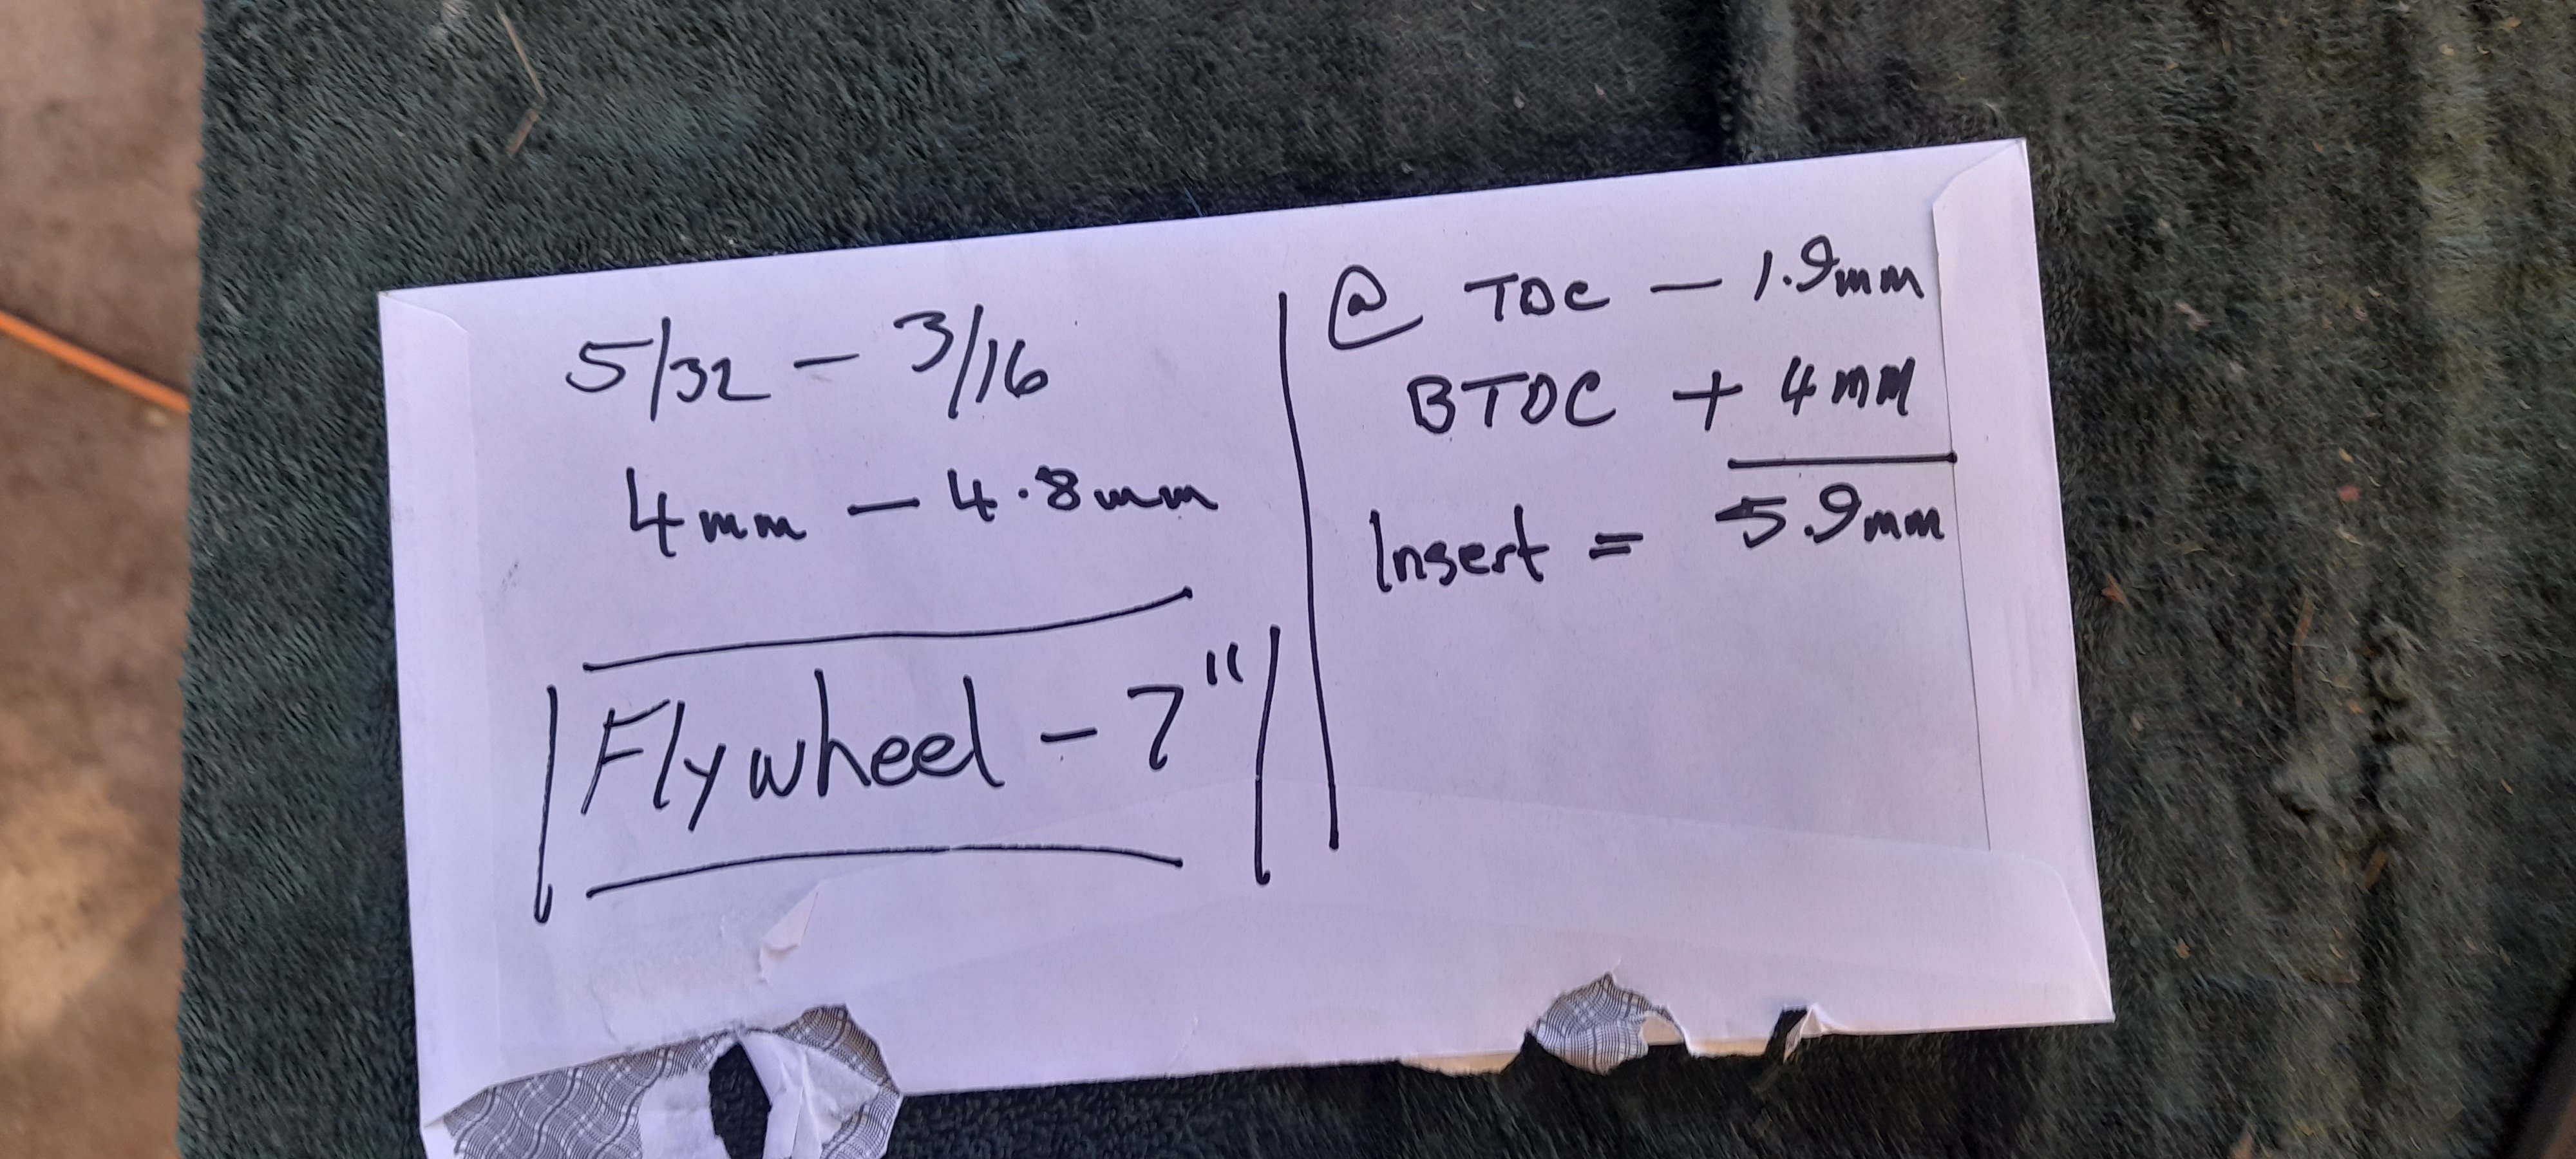 5/32 – 3/16
4mm – 4.8mm
Flywheel – 7"
@ TDC – 1.9mm
BTDC + 4mm
Insert = 5.9mm